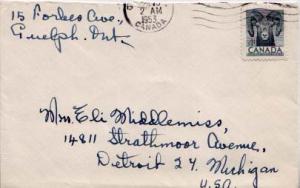 15 Forbes Ave.,
Guelph. Ont.
2 AM
1953
CANADA
CANADA
Mrs. Eli Middlemiss,
14811 Strathmoor Avenue,
Detroit 27. Michigan
U.S.A.